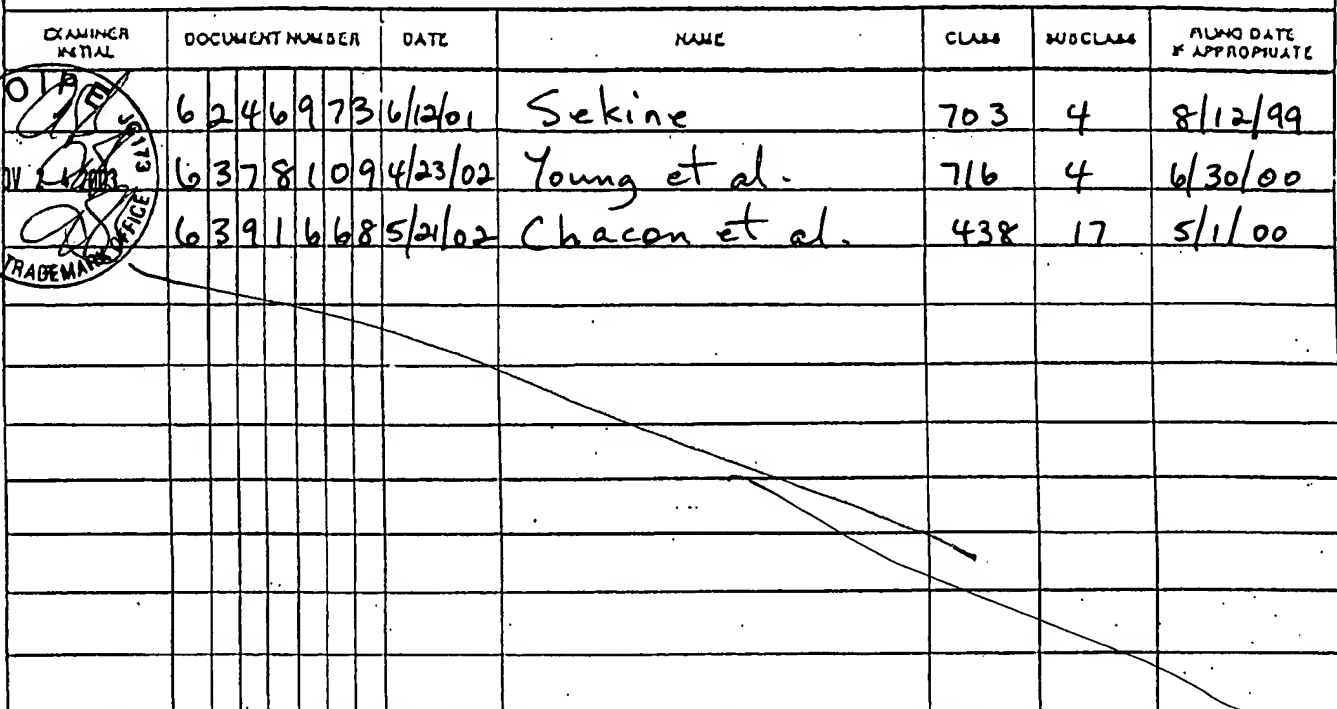 EXAMINER INITIAL DOCUMENT NUMBER DATE NAME CLASS SUBCLASS FILING DATE IF APPROPRIATE
6246973 6/12/01 Sekine 703 4 8/12/99
6378109 4/23/02 Young et al. 716 4 6/30/00
6391668 5/21/02 Chacon et al. 438 17 5/1/00
OIPE JC173
2003
TRADEMARK OFFICE